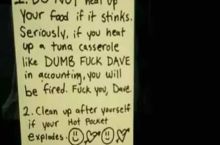 1. DO NOT heat up
your food if it stinks.
Seriously, if you heat
up a tuna casserole
like DUMB FUCK DAVE
in accounting, you will
be fired. Fuck you, Dave.
2. Clean up after yourself
if your Hot Pocket
explodes.